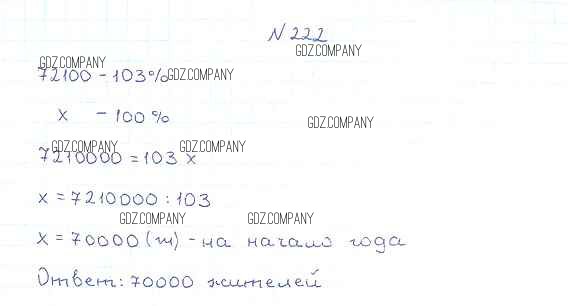 N 222
GDZ.COMPANY
GDZ.COMPANY
72100 - 103% GDZ.COMPANY
x - 100%
GDZ.COMPANY
GDZ.COMPANY GDZ.COMPANY
7210000 = 103 x
x = 7210000 : 103
GDZ.COMPANY GDZ.COMPANY
x = 70000 (ж) - на начало года
Ответ: 70000 жителей